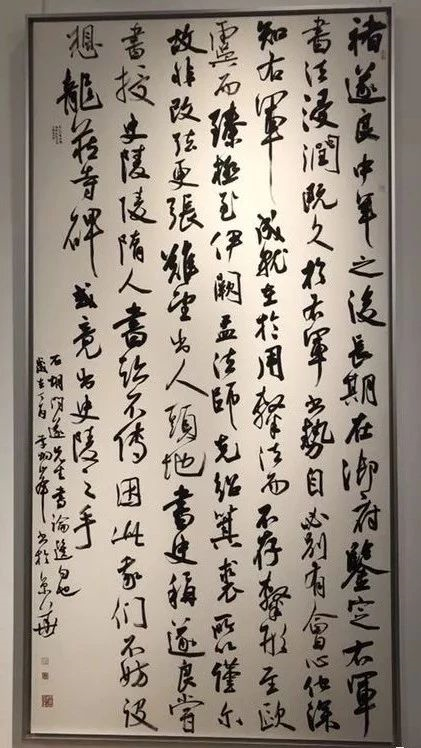 褚遂良中年之後長期在御府鑒定右軍
書法浸潤既久於右軍書勢自必別有會心他深
知右軍成就在於用擊法而不存擊形至歐
虞而臻極至伊闕孟法師克紹箕裘所以僅爾
故非改弦更張難望出人頭地書史稱遂良嘗
書授史陵陵隋人書跡不傳因此我們不妨設
想龍藏寺碑或竟出史陵之手
石湖閑遂先生書論選句也
歲在丁酉 書於京華